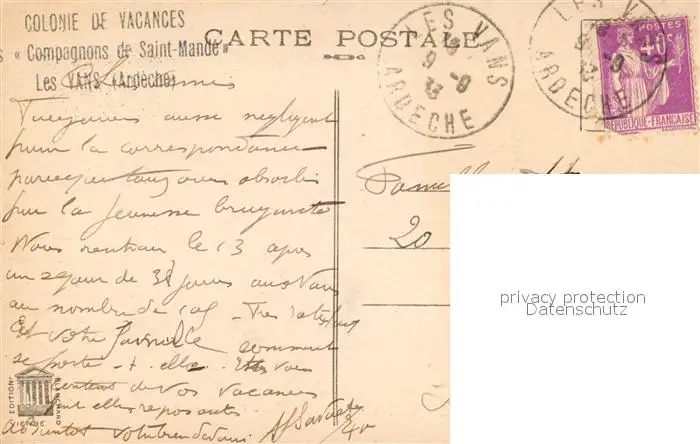 COLONIE DE VACANCES
« Compagnons de Saint-Mandé »
Les VANS (Ardèche)
CARTE POSTALE
LES VANS
ARDECHE
LES VANS
ARDECHE
40c
REPUBLIQUE FRANÇAISE
Toujours aussi négligent
pour la correspondance
parce que toujours absorbé
par la jeunesse bruyante
Nous rentrons le 13 après
un séjour de 38 jours aux Vans
au nombre de
Et votre famille comment
se porte-t-elle. Etes vous
de vos vacances
elles reposantes
A bientôt
20
privacy protection
Datenschutz
EDITION BLANCHARD
VIENNE